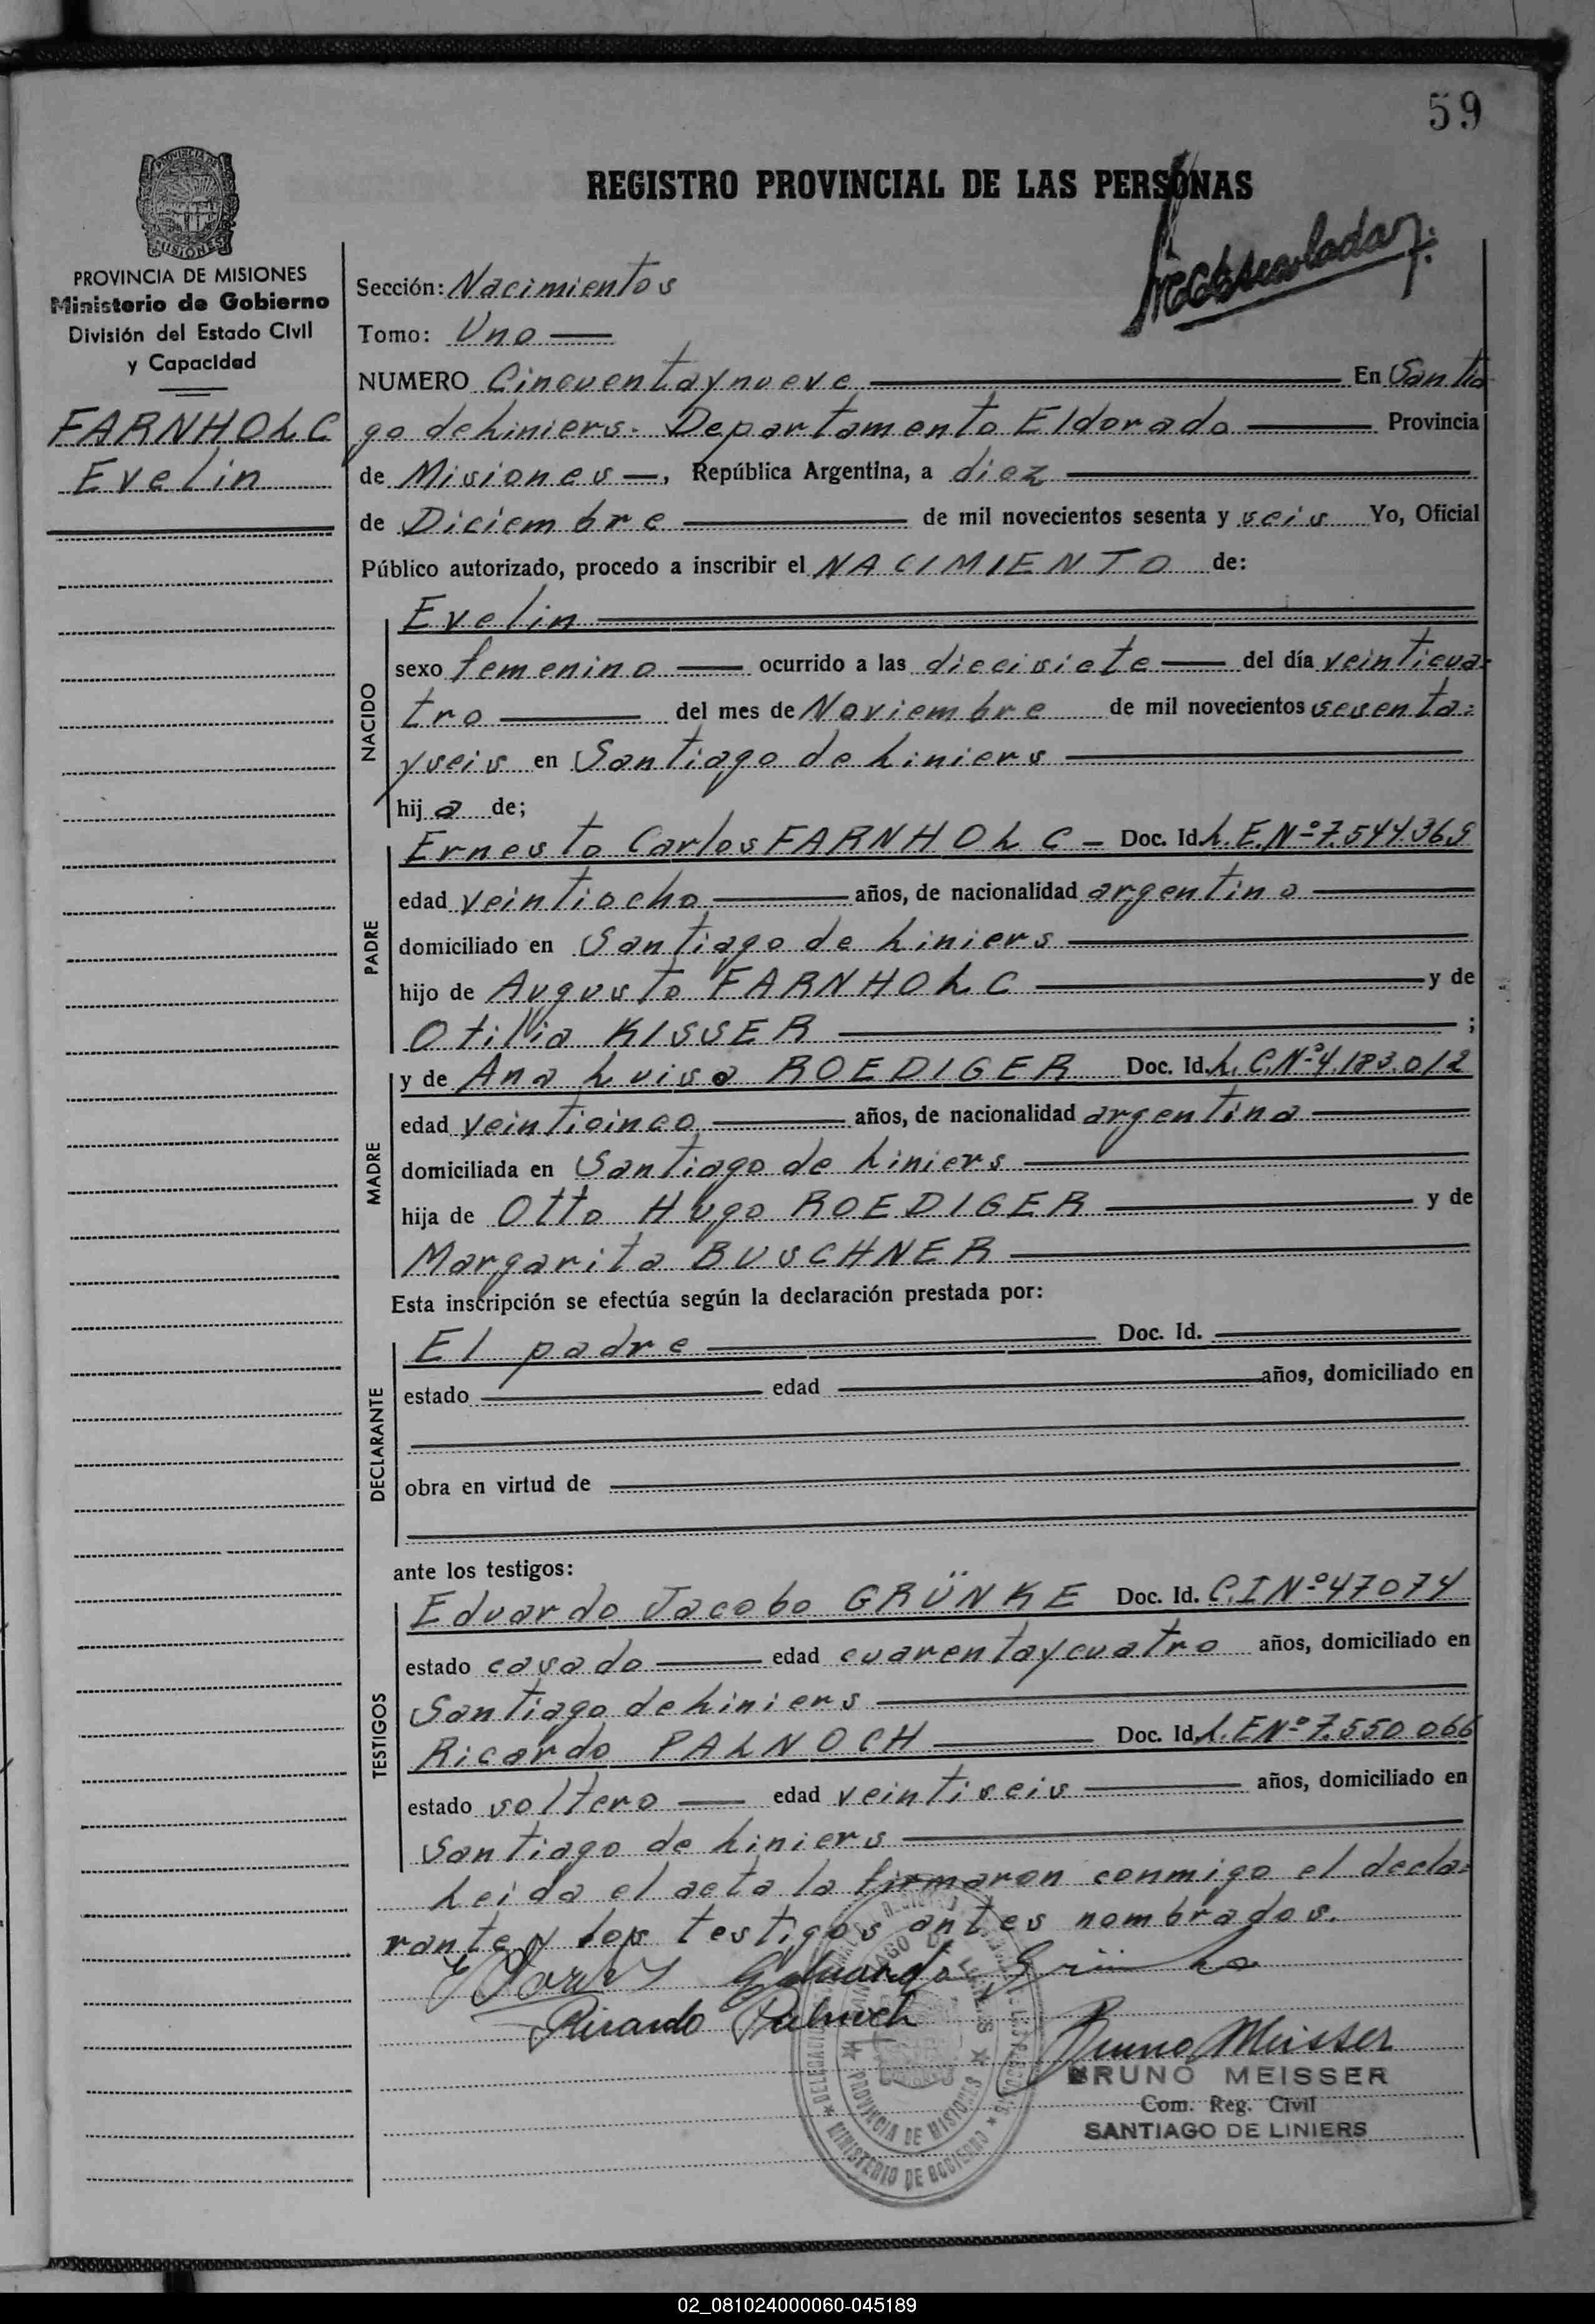 59
REGISTRO PROVINCIAL DE LAS PERSONAS
PROVINCIA DE MISIONES
Ministerio de Gobierno
División del Estado Civil
y Capacidad
FARNHOLC
Evelin
Sección: Nacimientos
Tomo: Uno
NUMERO Cincuentaynueve En Santia
go de Liniers. Departamento Eldorado Provincia
de Misiones, República Argentina, a diez
de Diciembre de mil novecientos sesenta y seis Yo, Oficial
Público autorizado, procedo a inscribir el NACIMIENTO de:
NACIDO
Evelin
sexo femenino ocurrido a las diecisiete del día veinticua-
tro del mes de Noviembre de mil novecientos sesenta=
yseis en Santiago de Liniers
hij a de;
PADRE
Ernesto Carlos FARNHOLC - Doc. Id. L.E.Nº7.544.369
edad veintiocho años, de nacionalidad argentina
domiciliado en Santiago de Liniers
hijo de Augusto FARNHOLC y de
Otilia KISSER ;
MADRE
y de Ana Luisa ROEDIGER Doc. Id. L.C.Nº4.183.012
edad veinticinco años, de nacionalidad argentina
domiciliada en Santiago de Liniers
hija de Otto Hugo ROEDIGER y de
Margarita BUSCHNER
Esta inscripción se efectúa según la declaración prestada por:
DECLARANTE
El padre Doc. Id.
estado edad años, domiciliado en
obra en virtud de
ante los testigos:
TESTIGOS
Eduardo Jacobo GRÜNKE Doc. Id. C.I Nº47074
estado casado edad cuarentaycuatro años, domiciliado en
Santiago de Liniers
Ricardo PALNOCH Doc. Id. L.E Nº7.550.066
estado soltero edad veintiseis años, domiciliado en
Santiago de Liniers
Leida el acta la firmaron conmigo el decla=
rante y los testigos antes nombrados.
Eduardo Grünke
Ricardo Palnoch
Bruno Meisser
BRUNO MEISSER
Com. Reg. Civil
SANTIAGO DE LINIERS
PROVINCIA DE MISIONES
MINISTERIO DE GOBIERNO
02_081024000060-045189